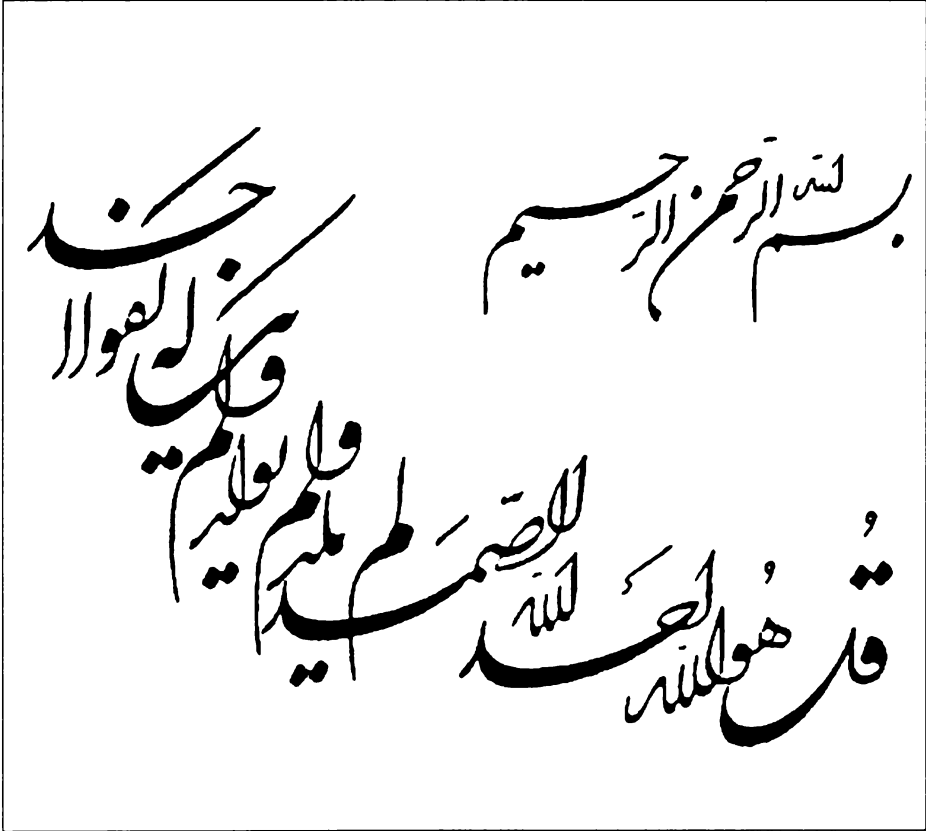 بسم الله الرحمن الرحيم
قُل هُو الله احد الله الصمد لم يلد ولم يولد ولم يكن له كفوا احد